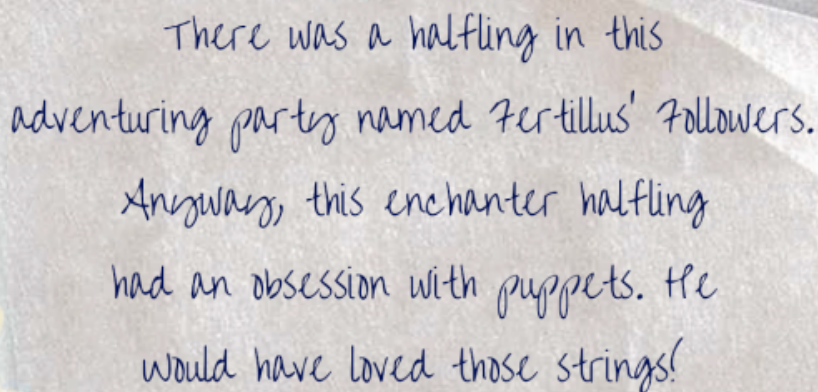 There was a halfling in this
adventuring party named Fertillus' Followers.
Anyway, this enchanter halfling
had an obsession with puppets. He
would have loved those strings!